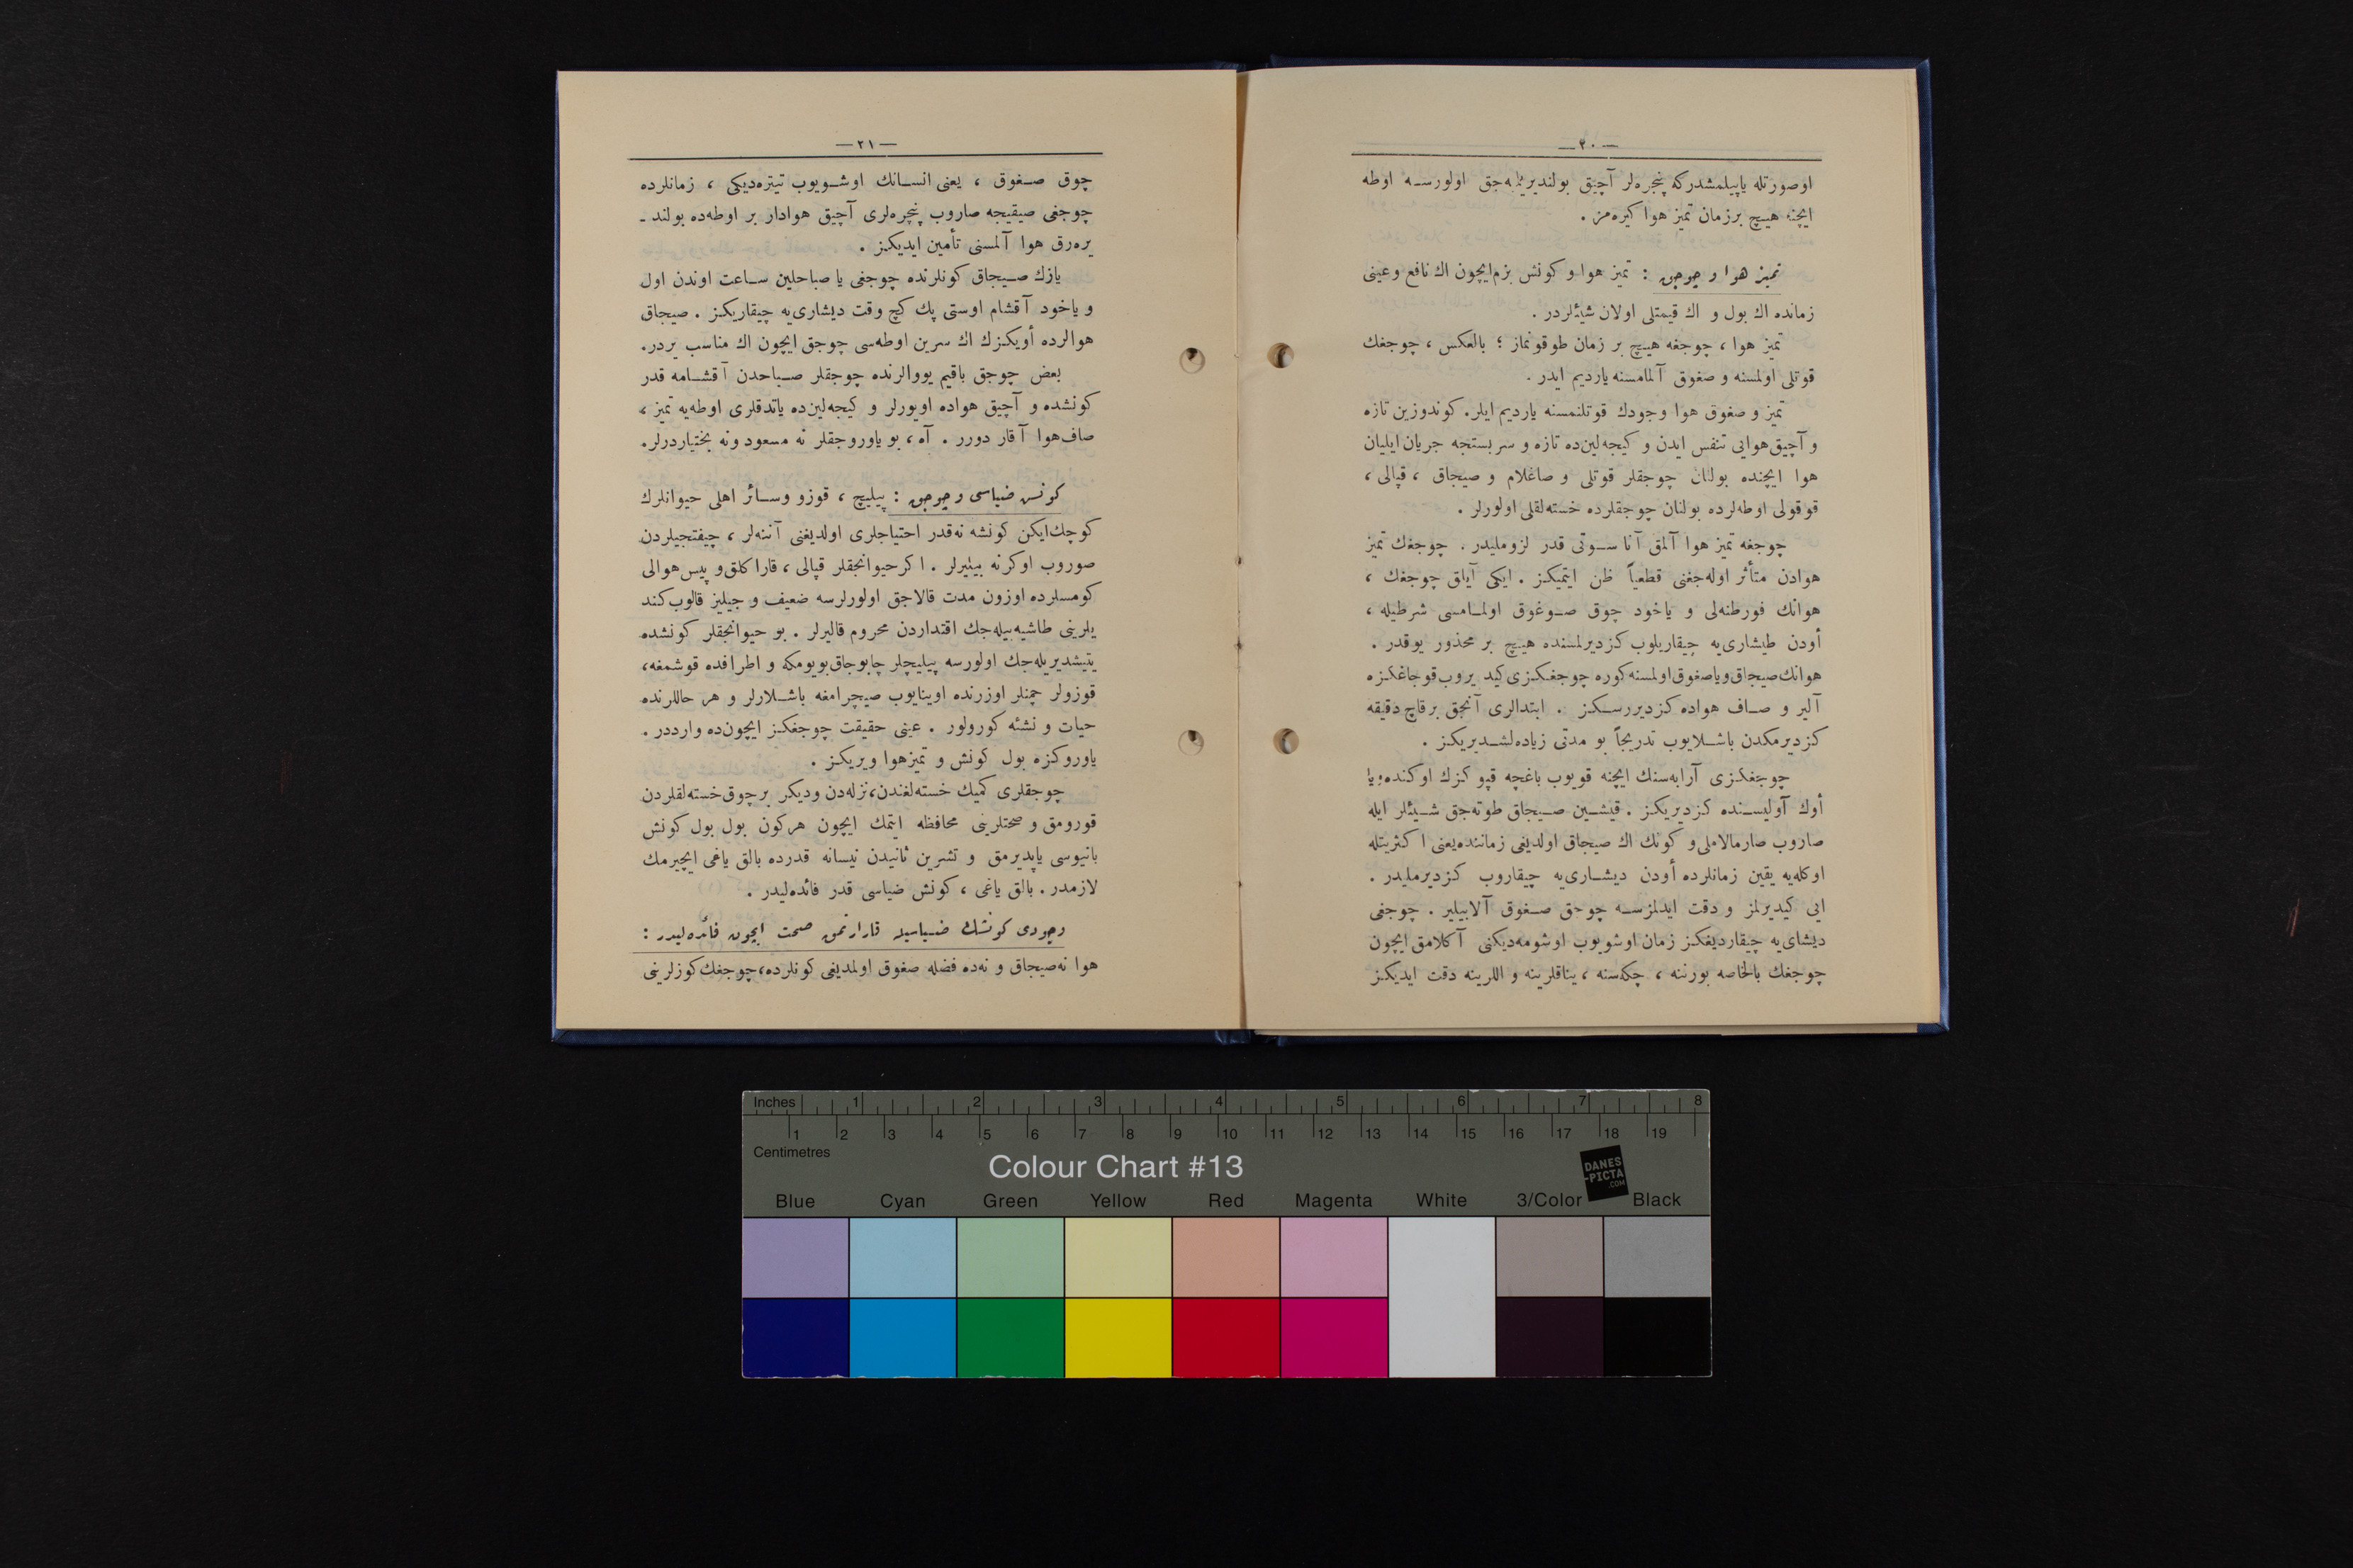 — ٢٠ —
اوصورتله یاپیلمشدرکه پنجره‌لر آچیق بولندیریله‌جق اولورسه اوطه
ایچنه هیچ برزمان تمیز هوا کیره‌مز .
تمیز هوا و چوجق : تمیز هوا و کونش بزم‌ایچون اك نافع وعینی
زمانده اك بول و اك قیمتلی اولان شیئلردر .
تمیز هوا ، چوجغه هیچ بر زمان طوقونماز ؛ بالعکس ، چوجغك
قوتلی اولمسنه و صغوق آلمامسنه یاردیم ایدر .
تمیز و صغوق هوا وجودك قوتلنمسنه یاردیم ایلر. کوندوزین تازه
و آچیق‌هوایی تنفس ایدن و کیجه‌لین‌ده تازه و سربستجه جریان‌ایلیان
هوا ایچنده بولنان چوجقلر قوتلی و صاغلام و صیجاق ، قپالی ،
قوقولی اوطه‌لرده بولنان چوجقلرده خسته‌لقلی اولورلر .
چوجغه تمیز هوا آلمق آنا سوتی قدر لزوملیدر . چوجغك تمیز
هوادن متأثر اوله‌جغنی قطعیاً ظن ایتمیکز . ایکی آیلق چوجغك ،
هوانك فورطنه‌لی و یاخود چوق صوغوق اولمامسی شرطیله ،
أودن طیشاری‌یه چیقاریلوب کزدیرلمسنده هیچ بر محذور یوقدر .
هوانك‌صیجاق‌ویاصغوق‌اولمسنه‌کوره چوجغکزی‌کیدیروب‌قوجاغکزه
آلیر و صاف هواده کزدیررسکز . ابتدالری آنجق برقاچ دقیقه
کزدیرمکدن باشلایوب تدریجاً بو مدتی زیاده‌لشدیریکز .
چوجغکزی آرابه‌سنك ایچنه قویوب باغچه قپوکزك اوکنده ویا
أوك آولیسنده کزدیریکز . قیشین صیجاق طوته‌جق شیئلر ایله
صاروب صارمالاملی‌و کونك اك صیجاق اولدیغی زماننده‌یعنی اکثریتله
اوکله‌یه یقین زمانلرده أودن دیشاری‌یه چیقاروب کزدیرملیدر .
ایی کیدیرلمز و دقت ایدلمزسه چوجق صغوق آلابیلیر . چوجغی
دیشای‌یه چیقاردیغکز زمان اوشویوب اوشومه‌دیکنی آکلامق‌ایچون
چوجغك بالخاصه بورننه ، چکه‌سنه ، یناقلرینه و اللرینه دقت ایدیکز
— ٢١ —
چوق صغوق ، یعنی انسانك اوشویوب تیتره‌دیکی ، زمانلرده
چوجغی صیقیجه صاروب پنچره‌لری آچیق هوادار بر اوطه‌ده بولند ـ
یره‌رق هوا آلمسنی تأمین ایدیکز .
یازك صیجاق کونلرنده چوجغی یا صباحلین ساعت اوندن اول
و یاخود آقشام اوستی پك کچ وقت دیشاری‌یه چیقاریکز . صیجاق
هوالرده أویکزك اك سرین اوطه‌سی چوجق ایچون اك مناسب یردر.
بعض چوجق باقیم یووالرنده چوجقلر صباحدن آقشامه قدر
کونشده و آچیق هواده اویورلر و کیجه‌لین‌ده یاتدقلری اوطه‌یه تمیز ،
صاف‌هوا آقار دورر . آه ، بو یاوروجقلر نه مسعود ونه بختیاردرلر.
کونش ضیاسی و چوجق : پیلیچ ، قوزو وسائر اهلی حیوانلرك
کوچك‌ایکن کونشه نه‌قدر احتیاجلری اولدیغنی آننه‌لر ، چیفتجیلردن
صوروب اوکرنه بیلیرلر . اکرحیوانجقلر قپالی ، قاراکلق‌و پیس‌هوالی
کومسلرده اوزون مدت قالاجق اولورلرسه ضعیف و جیلیز قالوب‌کند
یلرینی طاشیه‌بیله‌جك اقتداردن محروم قالیرلر . بو حیوانجقلر کونشده
یتیشدیریله‌جك اولورسه پیلیچلر چابوجاق‌بویومکه و اطرافده قوشمغه،
قوزولر چمنلر اوزرنده اوینایوب صیچرامغه باشلارلر و هر حاللرنده
حیات و نشئه کورولور . عینی حقیقت چوجغکز ایچون‌ده وارددر .
یاوروکزه بول کونش و تمیزهوا ویریکز .
چوجقلری کمیك خسته‌لغندن،نزله‌دن ودیکر برچوق‌خسته‌لقلردن
قورومق و صحتلرینی محافظه ایتمك ایچون هرکون بول بول کونش
بانیوسی یاپدیرمق و تشرین ثانیدن نیسانه قدرده بالق یاغی ایچیرمك
لازمدر . بالق یاغی ، کونش ضیاسی قدر فائده‌لیدر .
وجودی کونشك ضیاسیله قارارتمق صحت ایچون فائده‌لیدر :
هوا نه‌صیجاق و نه‌ده فضله صغوق اولمدیغی کونلرده، چوجغك‌کوزلرینی
Inches 1 2 3 4 5 6 7 8
1 2 3 4 5 6 7 8 9 10 11 12 13 14 15 16 17 18 19
Centimetres
Colour Chart #13
DANES
-PICTA
.COM
Blue Cyan Green Yellow Red Magenta White 3/Color Black